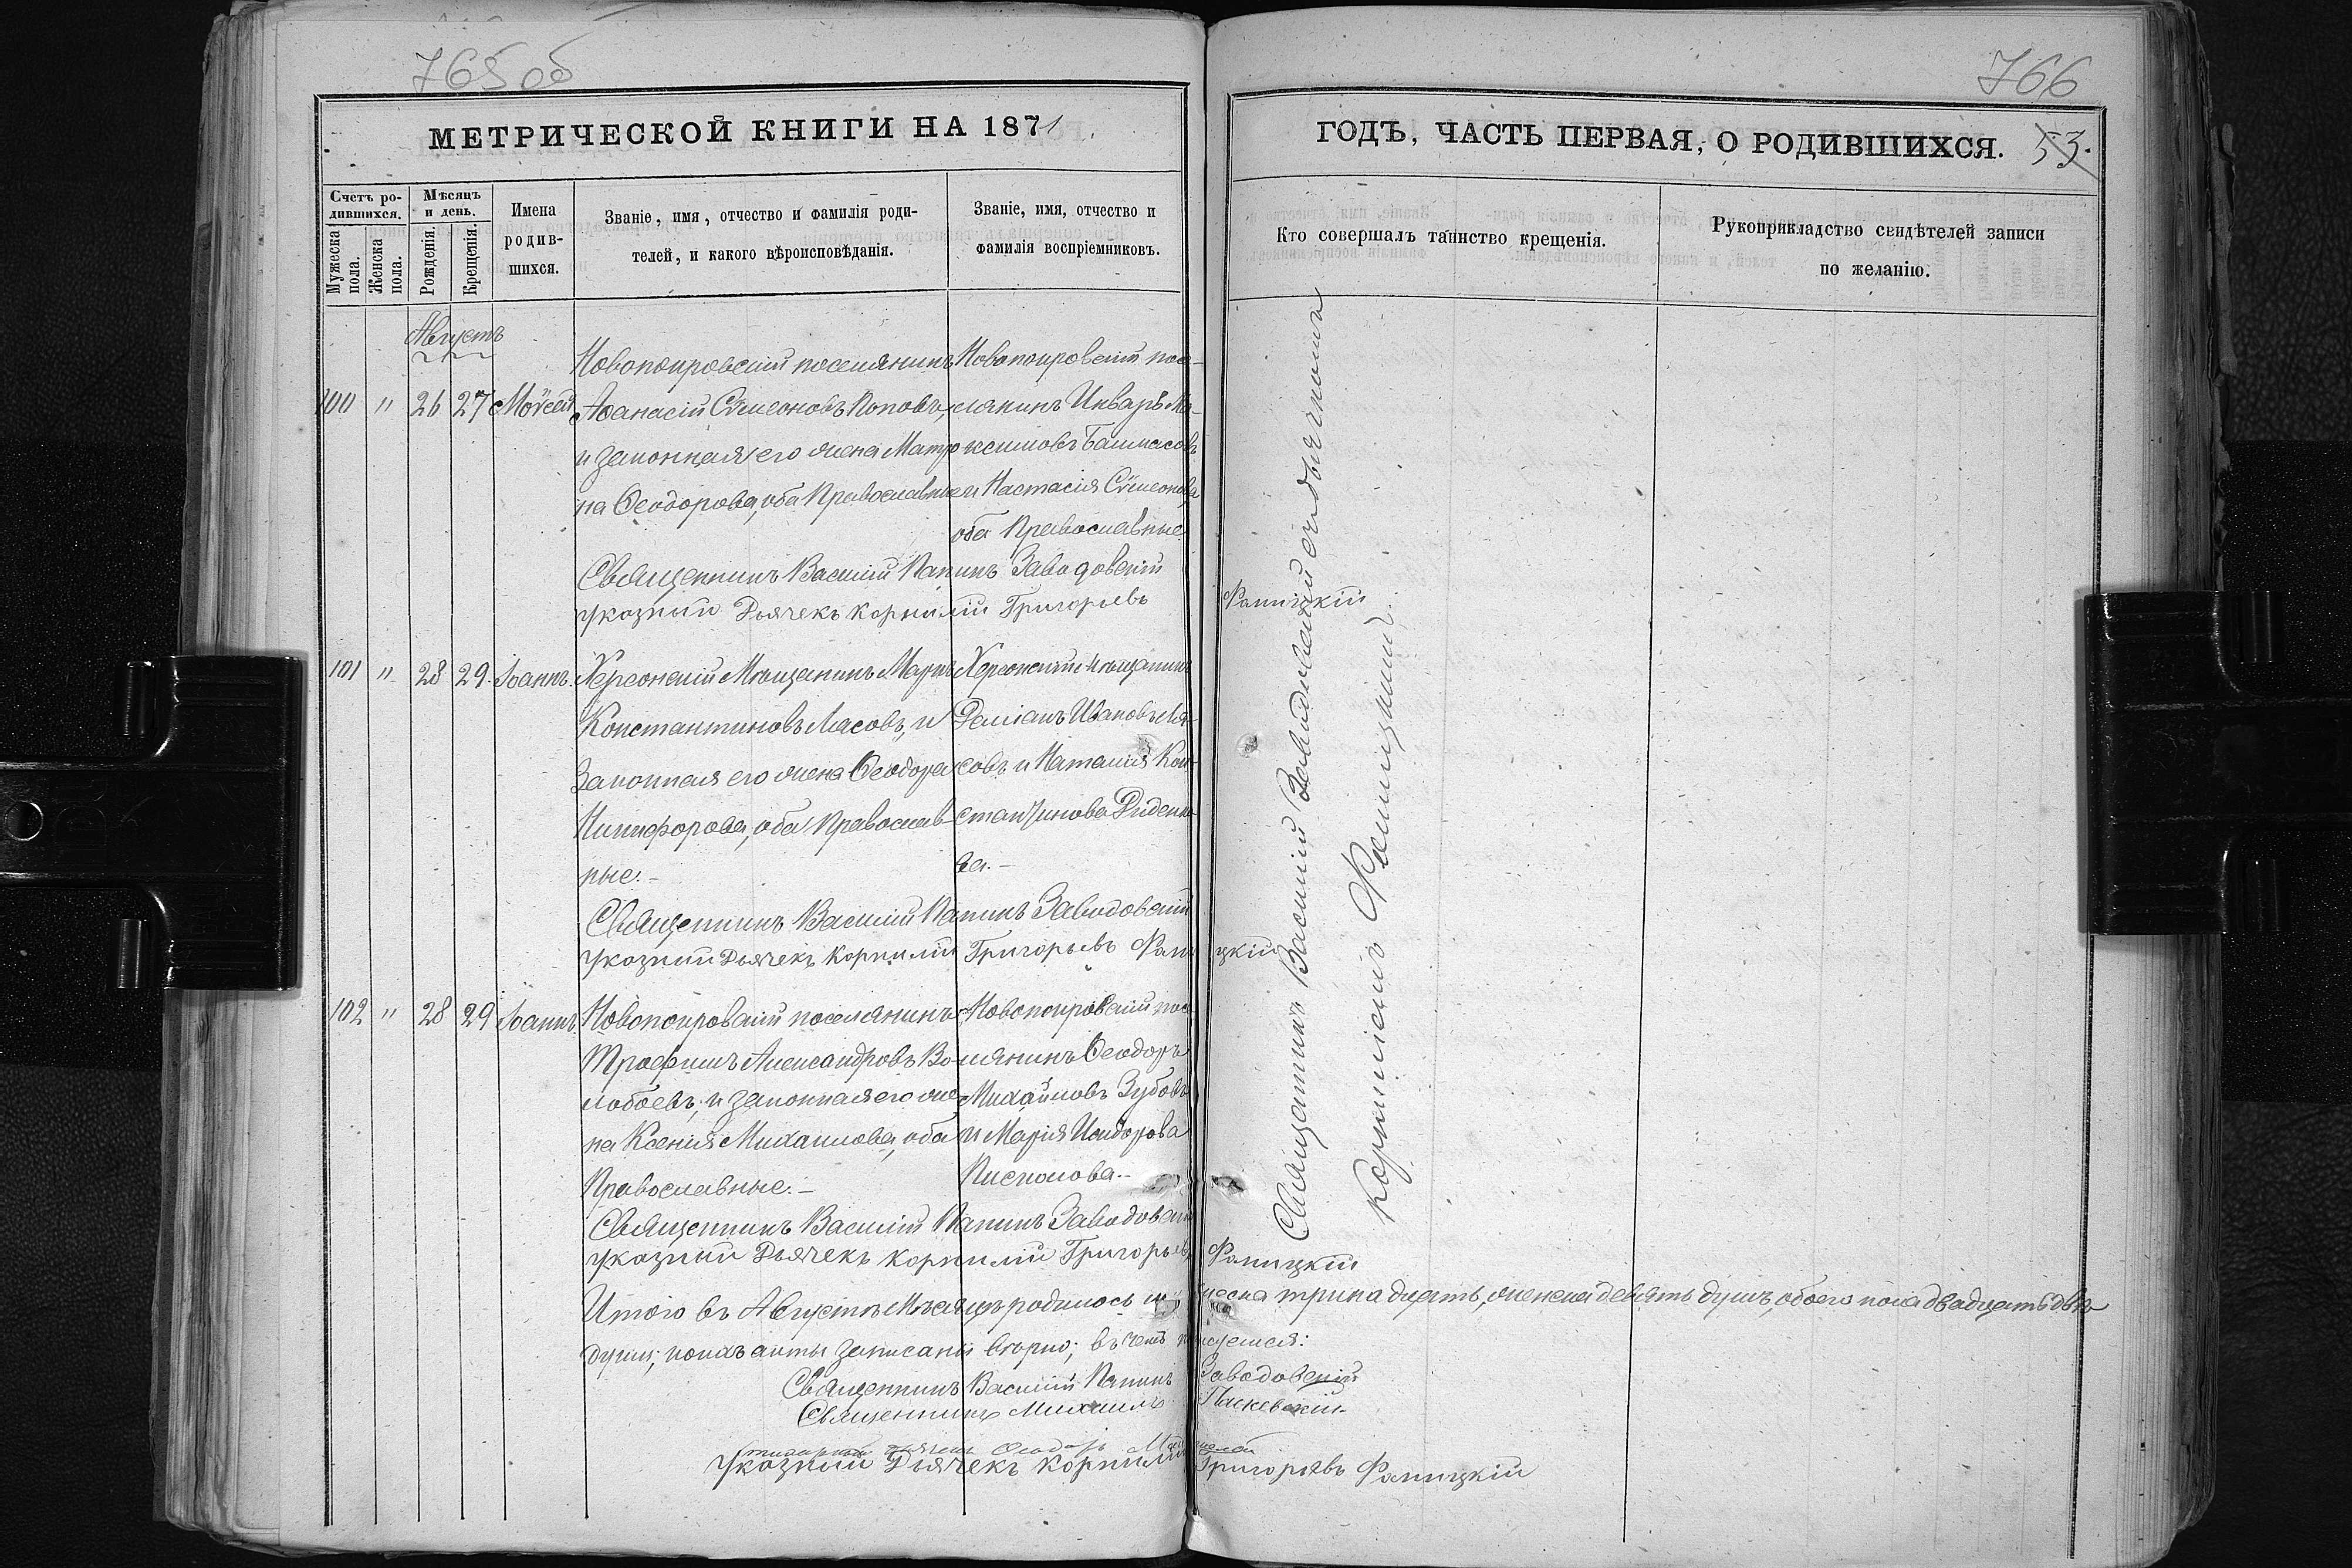 765 об
766
МЕТРИЧЕСКОЙ КНИГИ НА 1871
ГОДЪ, ЧАСТЬ ПЕРВАЯ, О РОДИВШИХСЯ. 53.
Счетъ ро-
дившихся.
Мужеска пола.
Женска пола.
Мѣсяцъ
и день.
Рожденія.
Крещенія.
Имена
родив-
шихся.
Званіе, имя, отчество и фамилія роди-
телей, и какого вѣроисповѣданія.
Званіе, имя, отчество и
фамилія воспріемниковъ.
Кто совершалъ таинство крещенія.
Рукоприкладство свидѣтелей записи
по желанію.
Августъ
100 " 26 27 Моѵсей
Новопокровскій поселянинъ
Аѳанасій Сѵмеоновъ Поповъ,
и законная его жена Матро
на Ѳеодорова, оба Православные
Новопокровскій посе-
лянинъ Ма-
ксимовъ
и Настасія Сѵмеонова
оба Православные
Священникъ Василій Папинъ Заводовскій
Указный Дьячекъ Корнилій Григорьевъ Фаницкій
101 " 28 29. Іоаннъ.
Херсонскій Мѣщанинъ Маркъ
Константиновъ Лясовъ, и
Законная его жена Ѳеодора
Никифорова, оба Православ-
ные.-
Херсонскій Мѣщанинъ
Даміанъ Ивановъ Ля-
совъ и Наталія Кон-
стантинова Диденко-
ва.-
Священникъ Василій Папинъ Заводовскій
Указный Дьячекъ Корнилій Григорьевъ Фаницкій
102 " 28 29 Іоаннъ.
Новопокровскій поселянинъ
Трофимъ Александровъ Во-
лобоевъ, и законная его же
на Ксенія Михаилова, оба
Православные.-
Новопокровскій посе
лянинъ Ѳеодоръ
Михайловъ Зубовъ
и Марія Исидорова
Священникъ Василій Папинъ Заводовскій
Указный Дьячекъ Корнилій Григорьевъ Фаницкій
Священникъ Василій Заводовскій съ дьячкомъ
Корниліемъ Фаницкимъ.
Итого въ Августѣ Мѣсяцѣ родилось мужеска тринадцать, женска девять душъ, обоего пола двадцать двѣ
души; коихъ акты записаны вѣрно; въ чемъ подписуемся:
Священникъ Василій Папинъ Заводовскій
Священникъ Михаилъ Паскевскій
дьячекъ Ѳеодоръ
Указный Дьячекъ Корнилій Григорьевъ Фаницкій